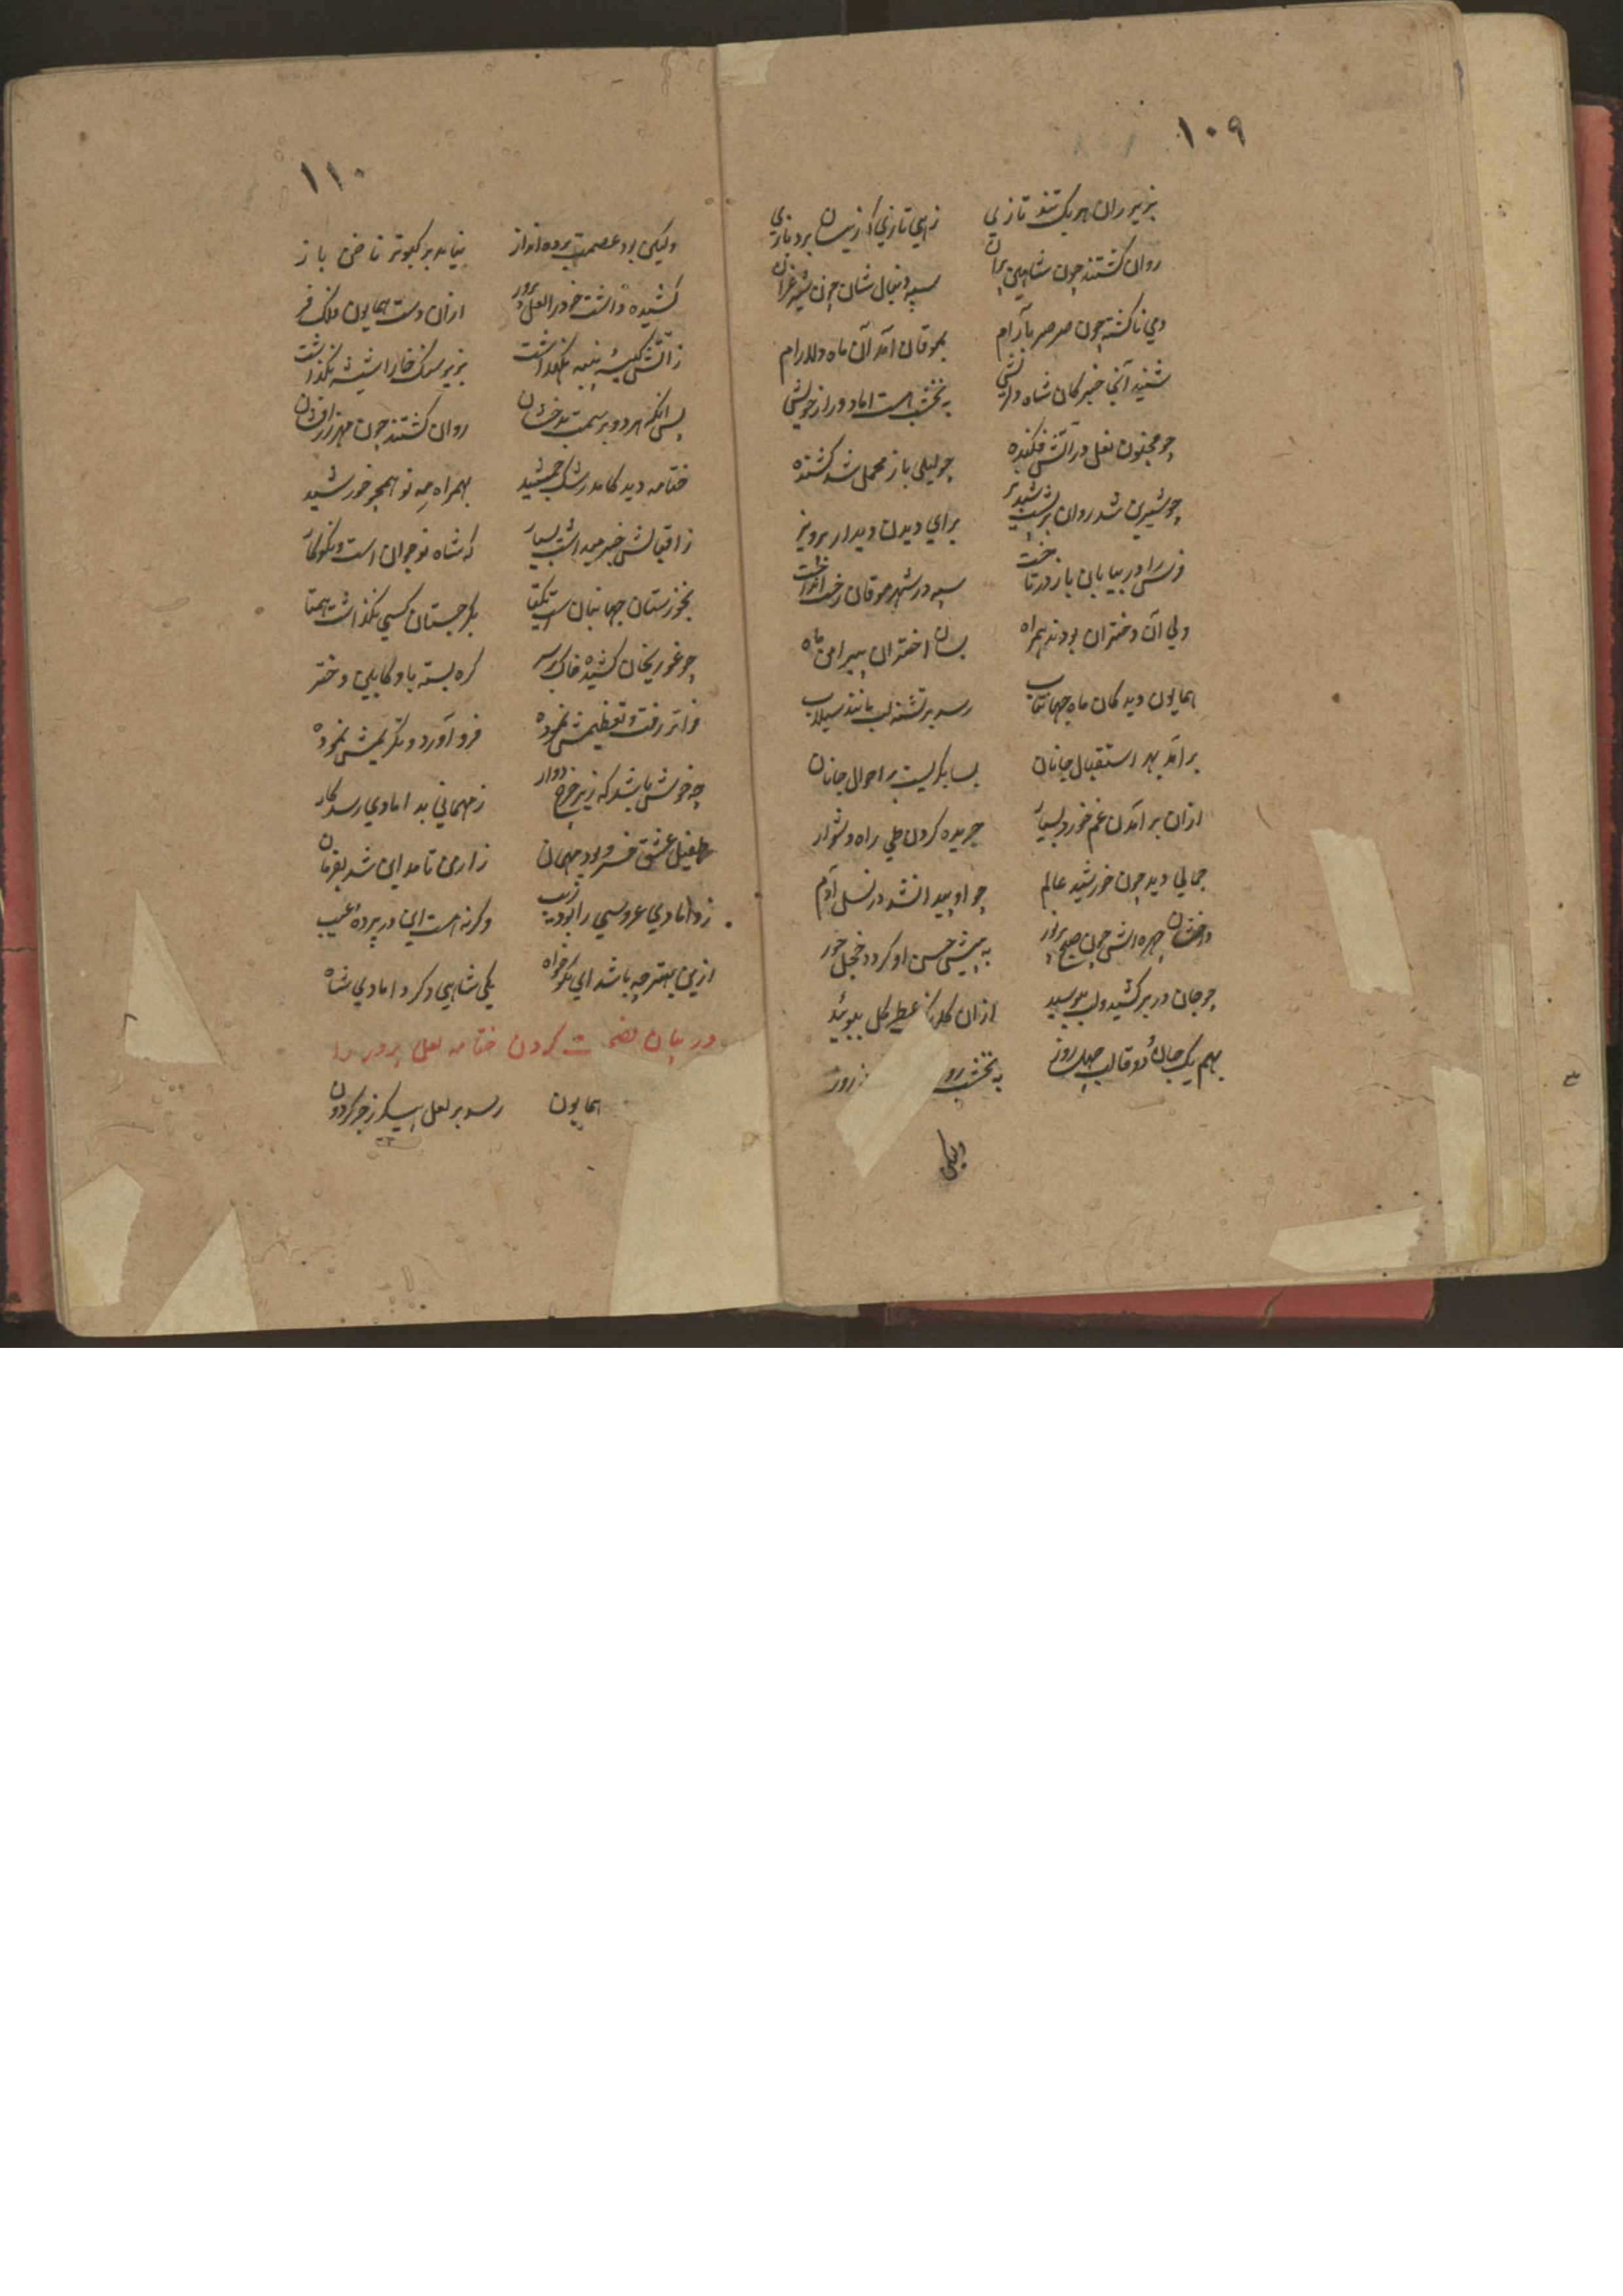 ۱۰۹
بزیر ران هر یک تند تازی زهی تازی کزیشان برد بازی
روان گشتند چون شاهین پران سپه دنبال شان چون شیر غران
دمی ناگشته چون صرصر بآرام بموقان آمد آن ماه دلارام
شنید آنجا خبر کان شاه دلریش به نخشب است اما دور از خویش
چو مجنون نعل در آتش فکنده چو لیلی باز محمل شد کشنده
چو شیرین شد روان بر پشت شبدیز برای دیدن دیدار پرویز
فرس را در بیابان باز در تاخت سپه در شهر موقان رخت انداخت
ولی آن دختران بودند همراه بسان اختران پیرامن ماه
همایون دید کان ماه جهانتاب رسد بر تشنه لب مانند سیلاب
برآمد بهر استقبال جانان بسا بگریست بر احوال جانان
ازان برآمدن غم خورد بسیار جریده کردن طی راه دشوار
جمالی دید چون خورشید عالم چو او پیدا نشد در نسل آدم
درخشان چهره اش چون صبح پرنور به پیش حسن او گردد خجل حور
چو جان در بر کشید و لب ببوسید ازان عطر گل ببوئید
بهم یک جان و دو قالب چهل روز به نخشب
ولیکن
۱۱۰
ولیکن بود عصمت پرده انداز نیامد بر کبوتر ناخن باز
کشیده داشت خود را لعل پرور ازان دست همایون ملک فر
ز آتش کیسهٔ پنبه نگهداشت بزیر سنگ خارا شیشه نگذاشت
پس آنگه هر دو بر سمت بدخشان روان گشتند چون مهر زرافشان
ختامه دید کامد رشک جمشید بهمراه مه نو همچو خورشید
ز اقبالش خبر میداشت بسیار که شاه نوجوان است و نکوکار
بخوزستان جهانبان است یکتا بگرجستان کسی نگذاشت همتا
چو غوریخان کشیده خاک بر سر گره بسته باو کابلی دختر
فراتر رفت و تعظیمش نموده فرود آورد و تکریمش نموده
چه خوش باشد که زیر چرخ دوار ز مهمانی بدامادی رسد کار
طفیل عشق خسرو بود مهمان ز ارمن تا مداین شد بفرمان
ز دامادی عروسی را بود زیب وگرنه هست این در پرده عیب
ازین بهتر چه باشد ای نکوخواه یکی شاهی دگر دامادی شاه
در بیان کردن ختامه لعل پرور را
همایون رسد بر لعل پیکر زجر گردون